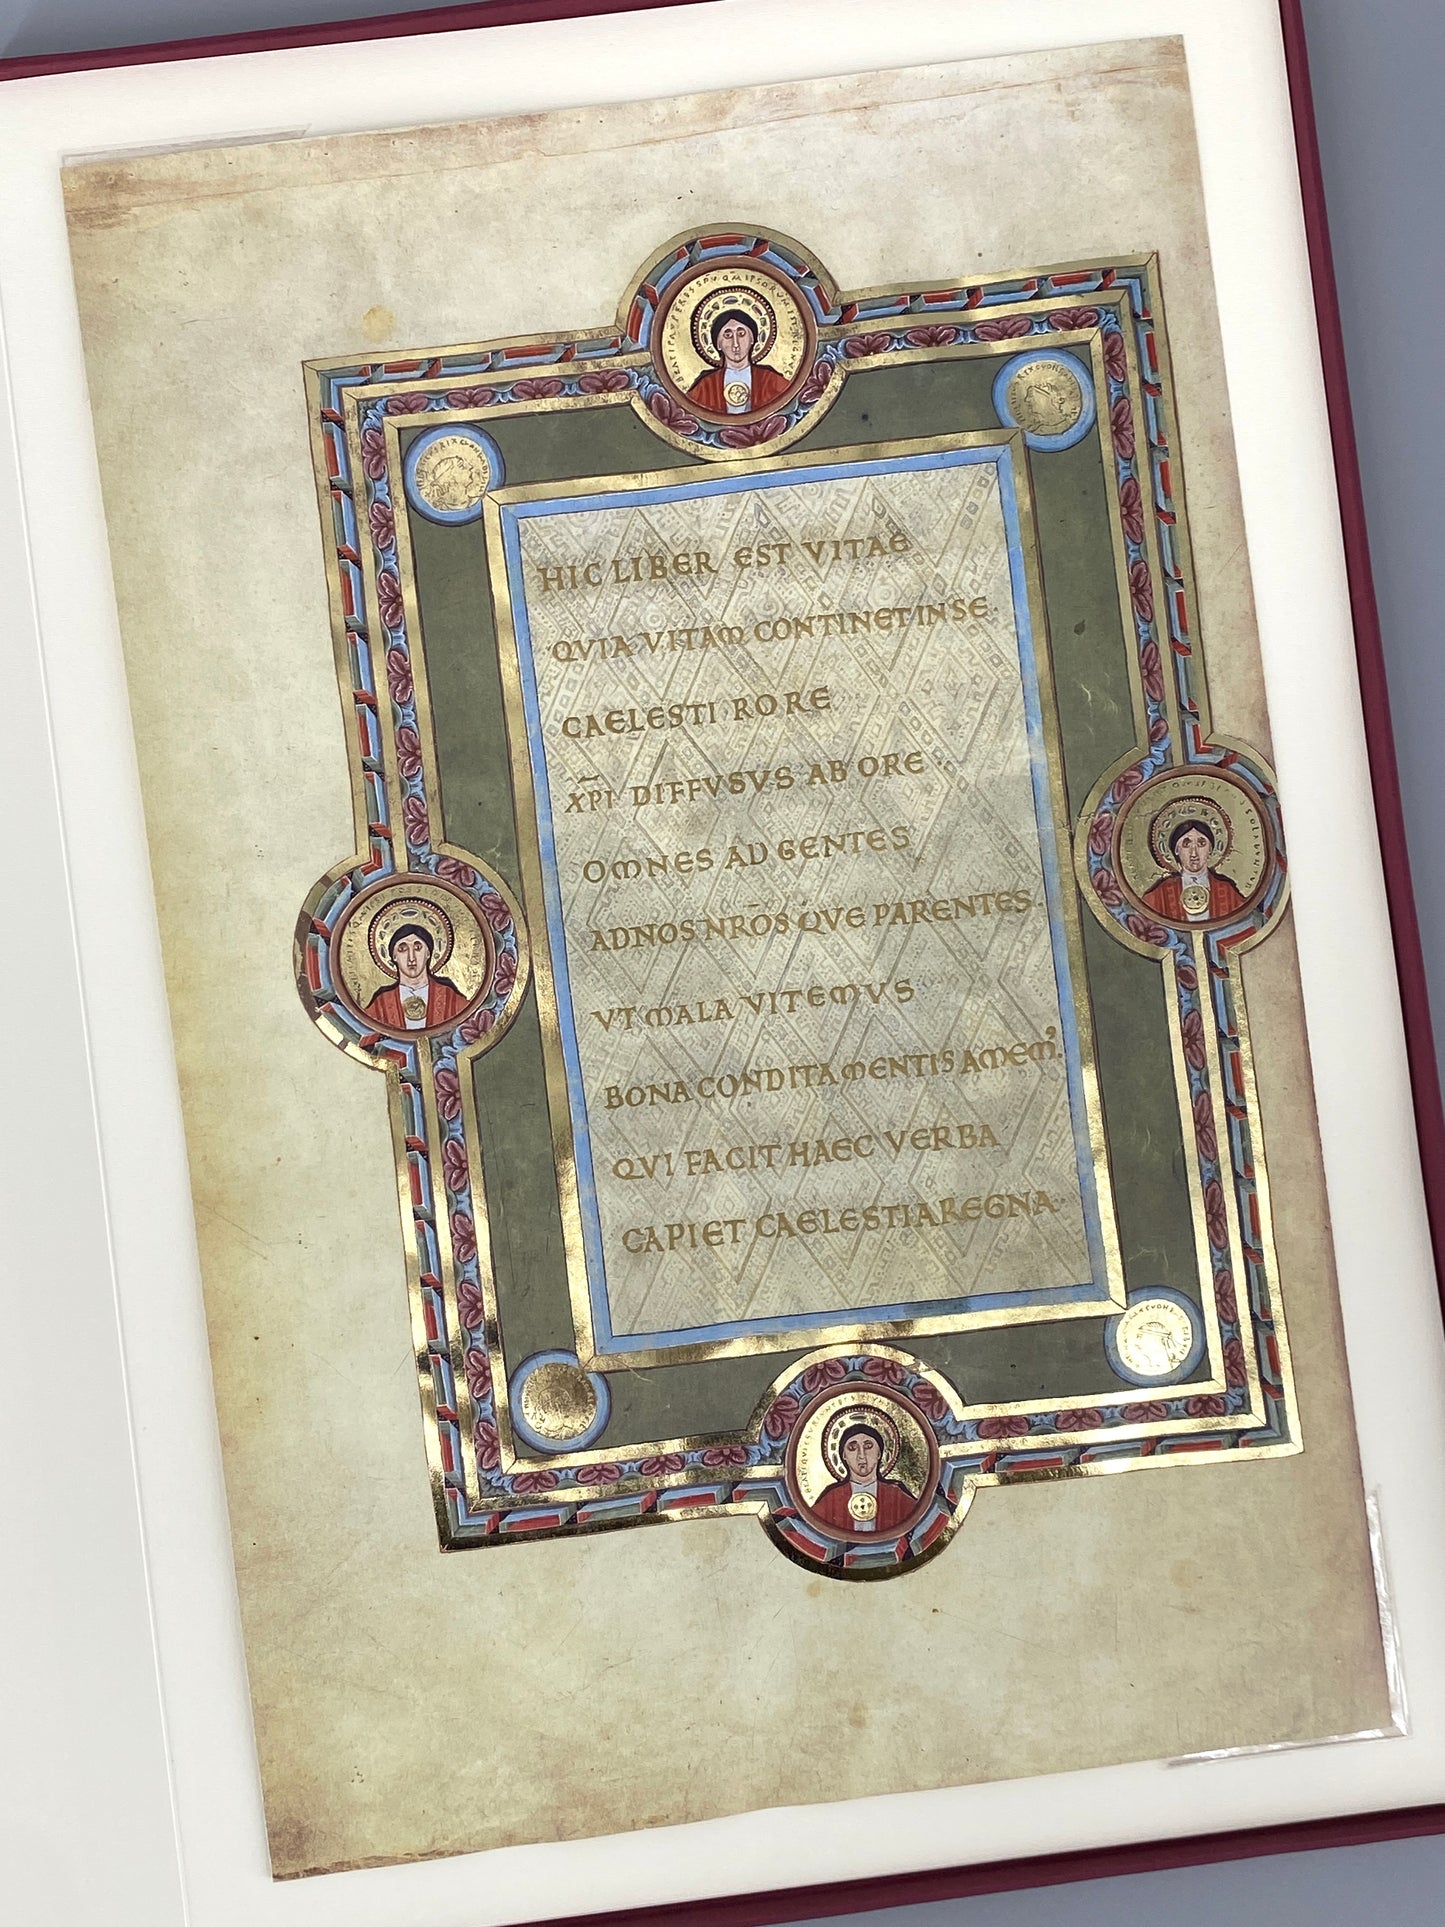 HIC LIBER EST VITAE
QVIA VITAM CONTINET IN SE·
CAELESTI RORE
XP̄I DIFFVSVS AB ORE
OMNES AD GENTES
AD NOS NRŌS QVE PARENTES·
VT MALA VITEMVS
BONA CONDITA MENTIS AMEM᾿·
QVI FACIT HAEC VERBA
CAPIET CAELESTIA REGNA·